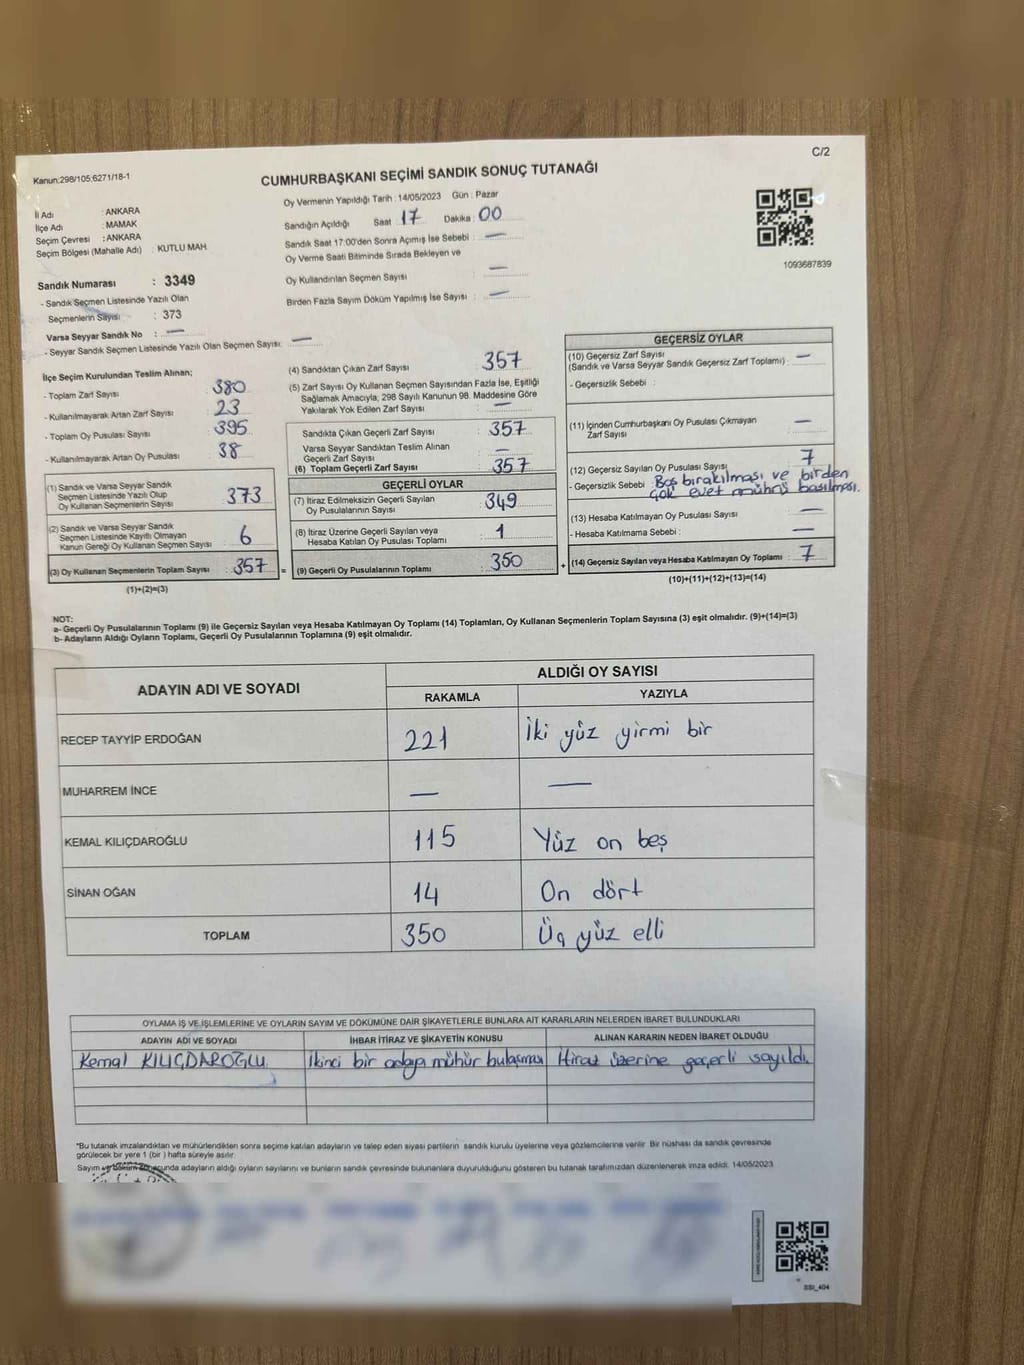 C/2
Kanun:298/105;6271/18-1
CUMHURBAŞKANI SEÇİMİ SANDIK SONUÇ TUTANAĞI
İl Adı : ANKARA
İlçe Adı : MAMAK
Seçim Çevresi : ANKARA
Seçim Bölgesi (Mahalle Adı) : KUTLU MAH.
Oy Vermenin Yapıldığı Tarih : 14/05/2023 Gün : Pazar
Sandığın Açıldığı Saat 17 Dakika : 00
Sandık Saat 17:00'den Sonra Açımış İse Sebebi : —
Oy Verme Saati Bitiminde Sırada Bekleyen ve
Oy Kullandırılan Seçmen Sayısı —
Birden Fazla Sayım Döküm Yapılmış İse Sayısı : —
1093687839
Sandık Numarası : 3349
- Sandık Seçmen Listesinde Yazılı Olan
Seçmenlerin Sayısı : 373
Varsa Seyyar Sandık No : —
- Seyyar Sandık Seçmen Listesinde Yazılı Olan Seçmen Sayısı: —
İlçe Seçim Kurulundan Teslim Alınan;
- Toplam Zarf Sayısı : 380
- Kullanılmayarak Artan Zarf Sayısı : 23
- Toplam Oy Pusulası Sayısı : 395
- Kullanılmayarak Artan Oy Pusulası : 38
(1) Sandık ve Varsa Seyyar Sandık
Seçmen Listesinde Yazılı Olup
Oy Kullanan Seçmenlerin Sayısı 373
(2) Sandık ve Varsa Seyyar Sandık
Seçmen Listesinde Kayıtlı Olmayan
Kanun Gereği Oy Kullanan Seçmen Sayısı 6
(3) Oy Kullanan Seçmenlerin Toplam Sayısı 357
(1)+(2)=(3)
(4) Sandıktan Çıkan Zarf Sayısı 357
(5) Zarf Sayısı Oy Kullanan Seçmen Sayısından Fazla İse, Eşitliği
Sağlamak Amacıyla, 298 Sayılı Kanunun 98. Maddesine Göre
Yakılarak Yok Edilen Zarf Sayısı —
Sandıkta Çıkan Geçerli Zarf Sayısı 357
Varsa Seyyar Sandıktan Teslim Alınan
Geçerli Zarf Sayısı —
(6) Toplam Geçerli Zarf Sayısı 357
GEÇERLİ OYLAR
(7) İtiraz Edilmeksizin Geçerli Sayılan
Oy Pusulalarının Sayısı 349
(8) İtiraz Üzerine Geçerli Sayılan veya
Hesaba Katılan Oy Pusulası Toplamı 1
= (9) Geçerli Oy Pusulalarının Toplamı 350
GEÇERSİZ OYLAR
(10) Geçersiz Zarf Sayısı
(Sandık ve Varsa Seyyar Sandık Geçersiz Zarf Toplamı) : —
- Geçersizlik Sebebi :
(11) İçinden Cumhurbaşkanı Oy Pusulası Çıkmayan
Zarf Sayısı —
(12) Geçersiz Sayılan Oy Pusulası Sayısı 7
- Geçersizlik Sebebi : Boş bırakılması ve birden
çok evet mührü basılması.
(13) Hesaba Katılmayan Oy Pusulası Sayısı —
- Hesaba Katılmama Sebebi : —
+ (14) Geçersiz Sayılan veya Hesaba Katılmayan Oy Toplamı : 7
(10)+(11)+(12)+(13)=(14)
NOT:
a- Geçerli Oy Pusulalarının Toplamı (9) ile Geçersiz Sayılan veya Hesaba Katılmayan Oy Toplamı (14) Toplamları, Oy Kullanan Seçmenlerin Toplam Sayısına (3) eşit olmalıdır. (9)+(14)=(3)
b- Adayların Aldığı Oyların Toplamı, Geçerli Oy Pusulalarının Toplamına (9) eşit olmalıdır.
ADAYIN ADI VE SOYADI ALDIĞI OY SAYISI
RAKAMLA YAZIYLA
RECEP TAYYİP ERDOĞAN 221 İki yüz yirmi bir
MUHARREM İNCE — —
KEMAL KILIÇDAROĞLU 115 Yüz on beş
SİNAN OĞAN 14 On dört
TOPLAM 350 Üç yüz elli
OYLAMA İŞ VE İŞLEMLERİNE VE OYLARIN SAYIM VE DÖKÜMÜNE DAİR ŞİKAYETLERLE BUNLARA AİT KARARLARIN NELERDEN İBARET BULUNDUKLARI
ADAYIN ADI VE SOYADI İHBAR İTİRAZ VE ŞİKAYETİN KONUSU ALINAN KARARIN NEDEN İBARET OLDUĞU
Kemal KILIÇDAROĞLU. İkinci bir adaya mühür bulaşması İtiraz üzerine geçerli sayıldı.
*Bu tutanak imzalandıktan ve mühürlendikten sonra seçime katılan adayların ve talep eden siyasi partilerin sandık kurulu üyelerine veya gözlemcilerine verilir. Bir nüshası da sandık çevresinde
görülecek bir yere 1 (bir) hafta süreyle asılır.
Sayım ve döküm sonucunda adayların aldığı oyların sayılarını ve bunların sandık çevresinde bulunanlara duyurulduğunu gösteren bu tutanak tarafımızdan düzenlenerek imza edildi. 14/05/2023
SSI_404